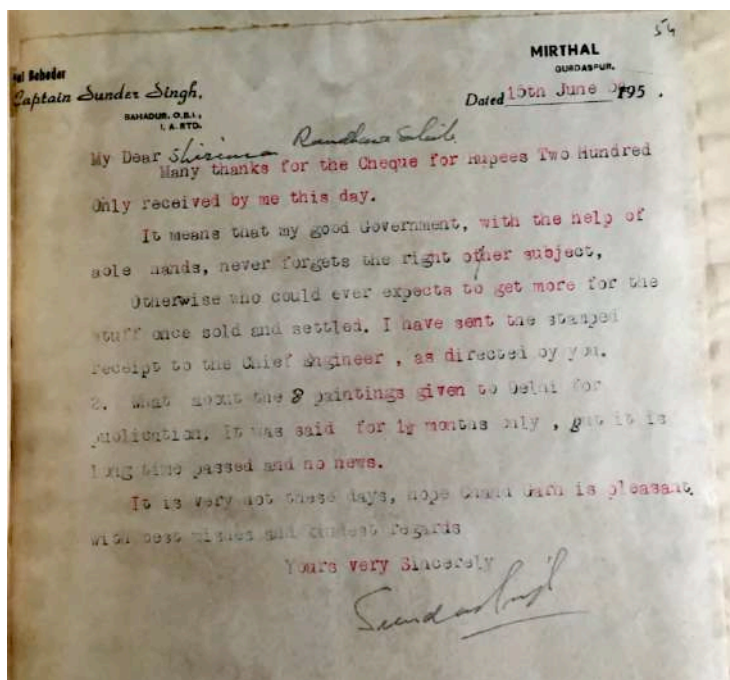 54
MIRTHAL
GURDASPUR.
Captain Sunder Singh,
BAHADUR, O.B.I.,
I. A. RTD.
Dated 15th June 195 .
My Dear Randhawa Sahib
Many thanks for the Cheque for Rupees Two Hundred
Only received by me this day.
It means that my good Government, with the help of
able hands, never forgets the right of her subject,
Otherwise who could ever expects to get more for the
stuff once sold and settled. I have sent the stamped
receipt to the Chief Engineer , as directed by you.
2. What about the 8 paintings given to Delhi for
publication. It was said for 1½ months only , but it is
Long time passed and no news.
It is very hot these days, hope Chand Garh is pleasant.
with best wishes and kindest regards
Yours very Sincerely
Sundar Singh